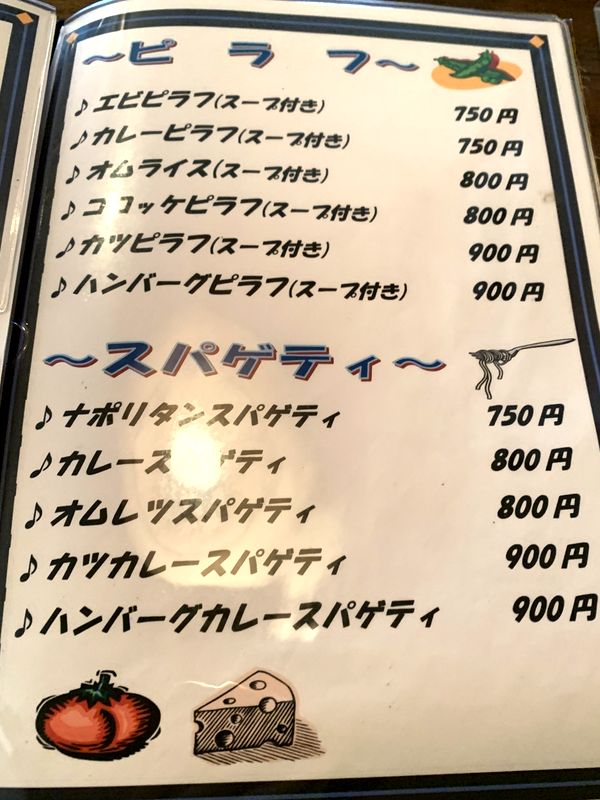 ～ピラフ～
♪エビピラフ(スープ付き) 750円
♪カレーピラフ(スープ付き) 750円
♪オムライス(スープ付き) 800円
♪コロッケピラフ(スープ付き) 800円
♪カツピラフ(スープ付き) 900円
♪ハンバーグピラフ(スープ付き) 900円
～スパゲティ～
♪ナポリタンスパゲティ 750円
♪カレースパゲティ 800円
♪オムレツスパゲティ 800円
♪カツカレースパゲティ 900円
♪ハンバーグカレースパゲティ 900円